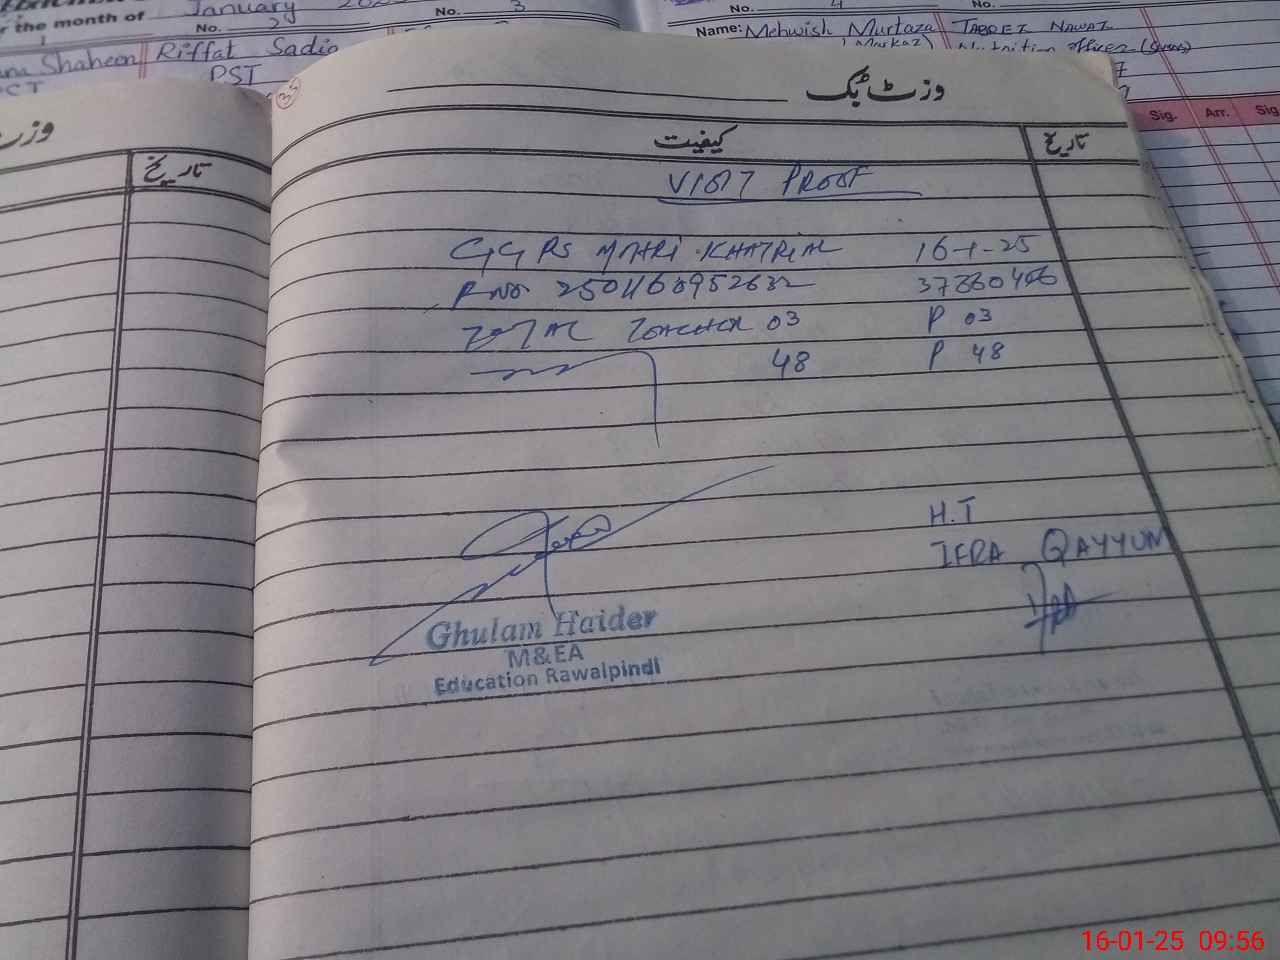 r the month of January
No. 2
No. 3
Shaheen
Riffat Sadia
PST
No. 4
No.
Name: Mehwish Murtaza
(Markaz)
TABREZ NAWAZ
Nutrition officer
Sig. Arr. Sig
35
وزٹ بک
تاریخ
کیفیت
تاریخ
VISIT PROOF
GGPS MOHRI KHATRIAL 16-1-25
R No 2501160952632 37360406
TOTAL TEACHER 03 P 03
48 P 48
H.T
IFRA QAYYUM
Ghulam Haider
M&EA
Education Rawalpindi
16-01-25 09:56